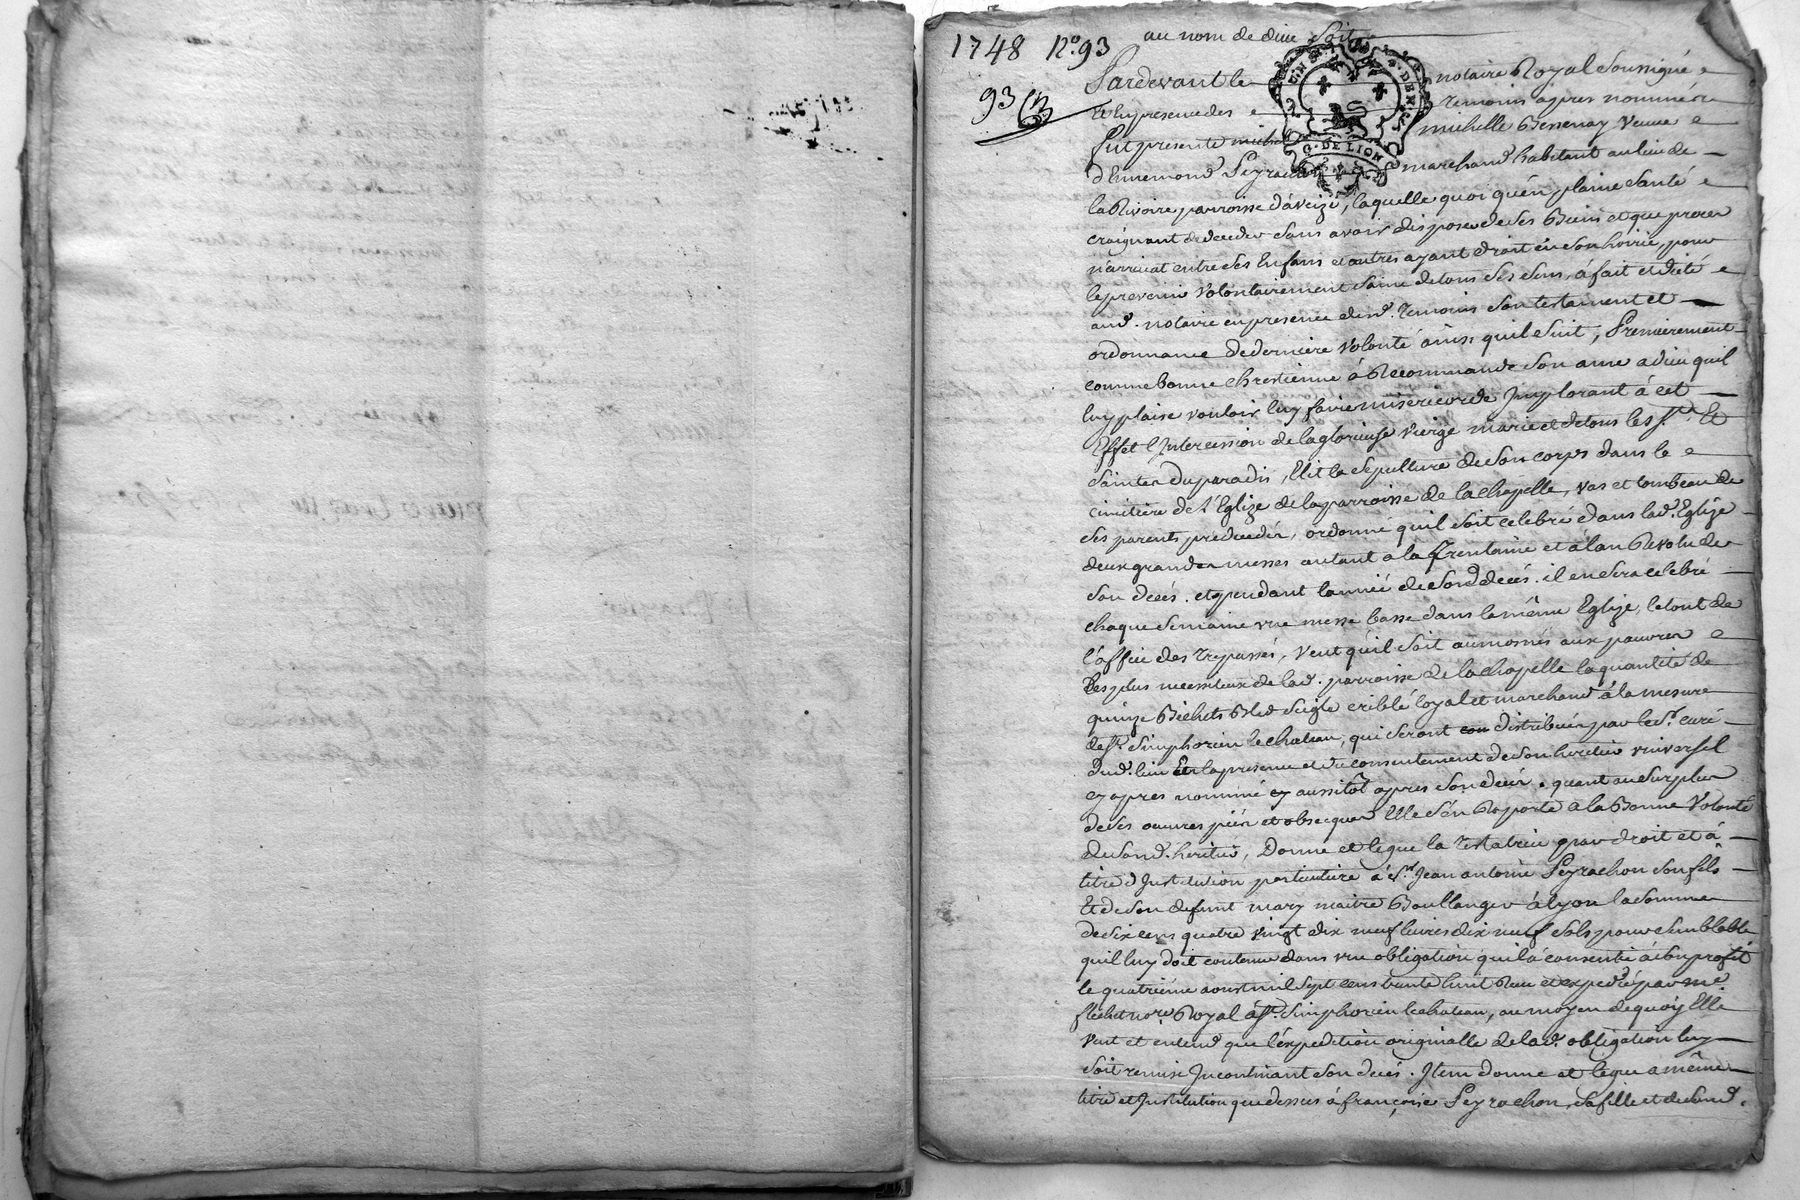 1748 N.º 93
93
au nom de dieu soit
Pardevant le notaire Royal soussigné
Et en presence des temoins apres nommés
fut presente michelle Bessenay veuve
d'Ennemond Peyrachon marchand habitant au lieu de
la Rivoire parroisse d'aveizé, laquelle quoi qu'en plaine santé
craignant de deceder sans avoir disposé de ses Biens et que procès
n'arrivat entre ses Enfans et autres ayant droit en son hoirie, pour
le prevenir volontairement saine de tous ses sens, à fait et dicté
aud. notaire en presence desd. temoins son testament et
ordonnance de derniere volonté ainsi quil suit, Premierement
comme bonne chrestienne à Recommandé son ame a dieu quil
luy plaise vouloir luy faire misericorde Implorant à cet
Effet l'Intercession de la glorieuse vierge marie et de tous les Sts Et
Saintes du paradis, Elit la sepulture de son corps dans le
cimitiere de l'Eglize de la parroisse de la chapelle, vas et tombeau de
ses parents prédecedés, ordonne quil soit celebré dans lad. Eglize
deux grandes messes autant a la trentaine et à l'an Revolu de
son decés. et pendant l'année de sond. decés. il en sera celebré
chaque semaine une messe basse dans la même Eglize, le tout de
l'office des trepassés, veut quil soit aumosnés aux pauvres
les plus necessiteux de lad. parroisse de la chapelle la quantité de
quinze Bichets Bled seigle criblé loyal et marchand à la mesure
de St. Simphorien le chateau, qui seront distribués par le Sr. curé
dud. lieu En la presence et du consentement de son heritier universel
cy apres nommé et aussitôt apres son decés. quant au surplus
de ses œuvres pies et obseques Elle s'en Raporte a la Bonne volonté
de sond. heritier, Donne et legue la testatrice par droit et à
titre d'Institution particuliere à Sr. Jean antoine Peyrachon son fils
Et de son defunt mary maitre Boullanger à lyon la somme
de six cens quatre vingt dix neuf livres dix neuf sols pour semblable
quil luy doit contenue dans une obligation quil à consentie à son profit
le quatrieme aoust mil sept cens trente huit Reçu et expedié par me.
flechet nore. Royal à St. Simphorien le chateau, au moyen de quoy Elle
veut et entend que l'expedition originalle de lad. obligation luy
soit remise Incontinant son decés. Item donne et legue a même
titre et Institution que dessus à françoise Peyrachon, sa fille et de sond.
G. DE LION